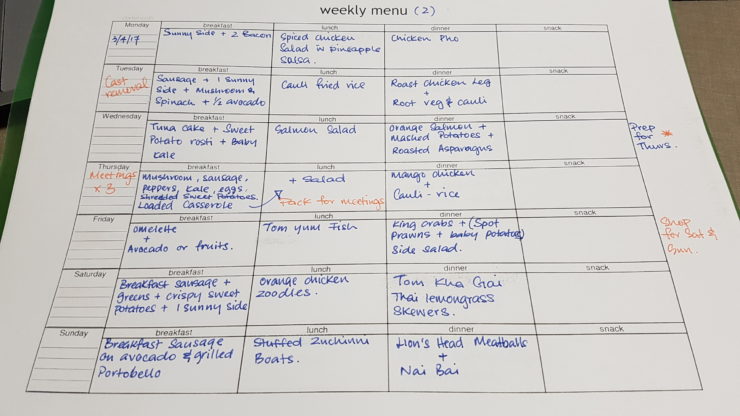 weekly menu (2)
Monday
breakfast
lunch
dinner
snack
3/4/17
Sunny side + 2 Bacon
Spiced chicken
Salad w pineapple
salsa.
Chicken Pho
Tuesday
breakfast
lunch
dinner
snack
Cast
removal
Sausage + 1 sunny
Side + Mushroom &
Spinach + 1/2 avocado
Cauli fried rice
Roast chicken Leg
+
Root veg & cauli
Wednesday
breakfast
lunch
dinner
snack
Tuna cake + Sweet
Potato rosti + Baby
Kale
Salmon Salad
Orange Salmon +
Mashed Potatoes +
Roasted Asparagus
Prep
for *
Thurs.
Thursday
breakfast
lunch
dinner
snack
Meetings
x 3
Mushroom, sausage,
peppers, Kale, eggs.
Shredded Sweet Potatoes.
Loaded Casserole
+ Salad
Pack for meetings
Mango chicken
+
Cauli-rice
Friday
breakfast
lunch
dinner
snack
Omelette
+
Avocado or fruits.
Tom yum Fish
King crabs + (Spot
Prawns + baby potatoes)
Side salad.
Shop
for Sat &
Sun.
Saturday
breakfast
lunch
dinner
snack
Breakfast sausage +
greens + crispy sweet
potatoes + 1 sunny side
Orange chicken
zoodles.
Tom Kha Gai
Thai lemongrass
Skewers.
Sunday
breakfast
lunch
dinner
snack
Breakfast Sausage
on avocado & grilled
Portobello
Stuffed Zuchinni
Boats.
Lion's Head Meatballs
+
Nai Bai